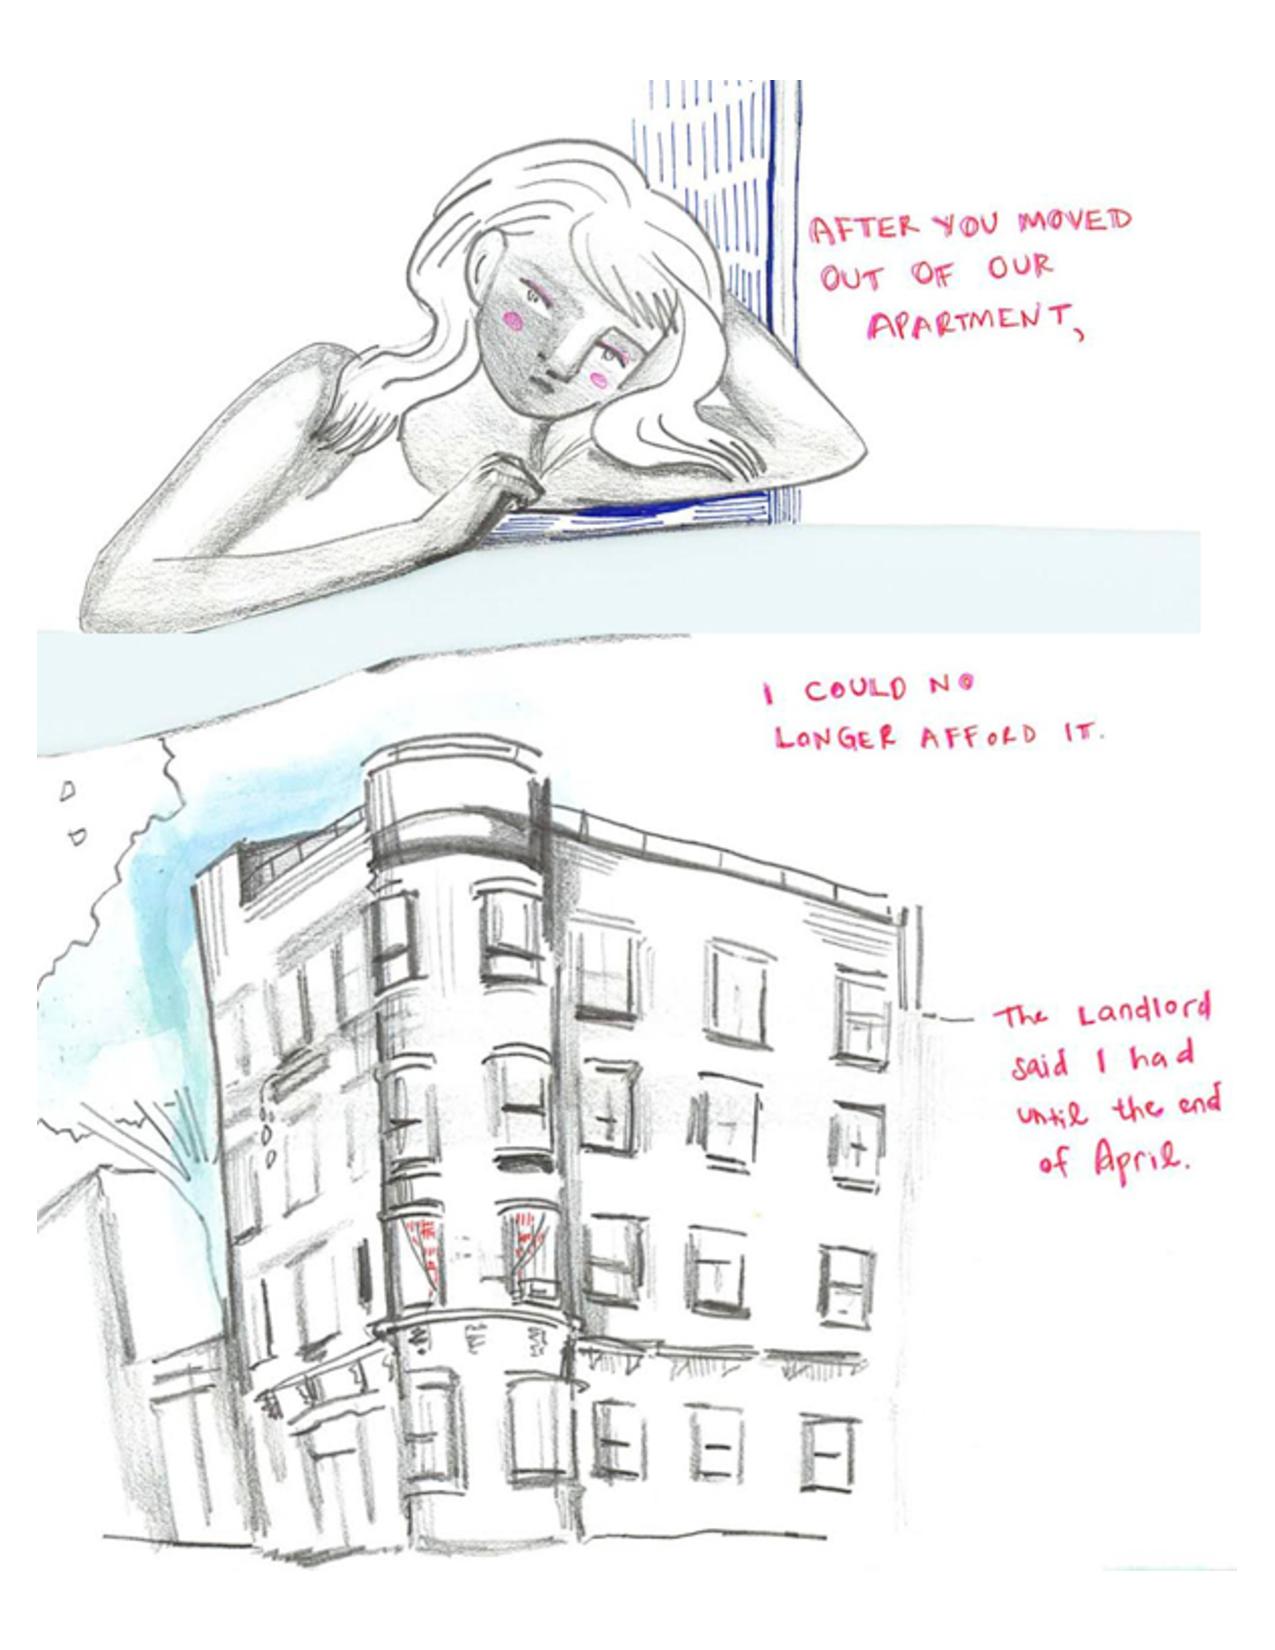 AFTER YOU MOVED
OUT OF OUR
APARTMENT,
I COULD NO
LONGER AFFORD IT.
The Landlord
said I had
until the end
of April.